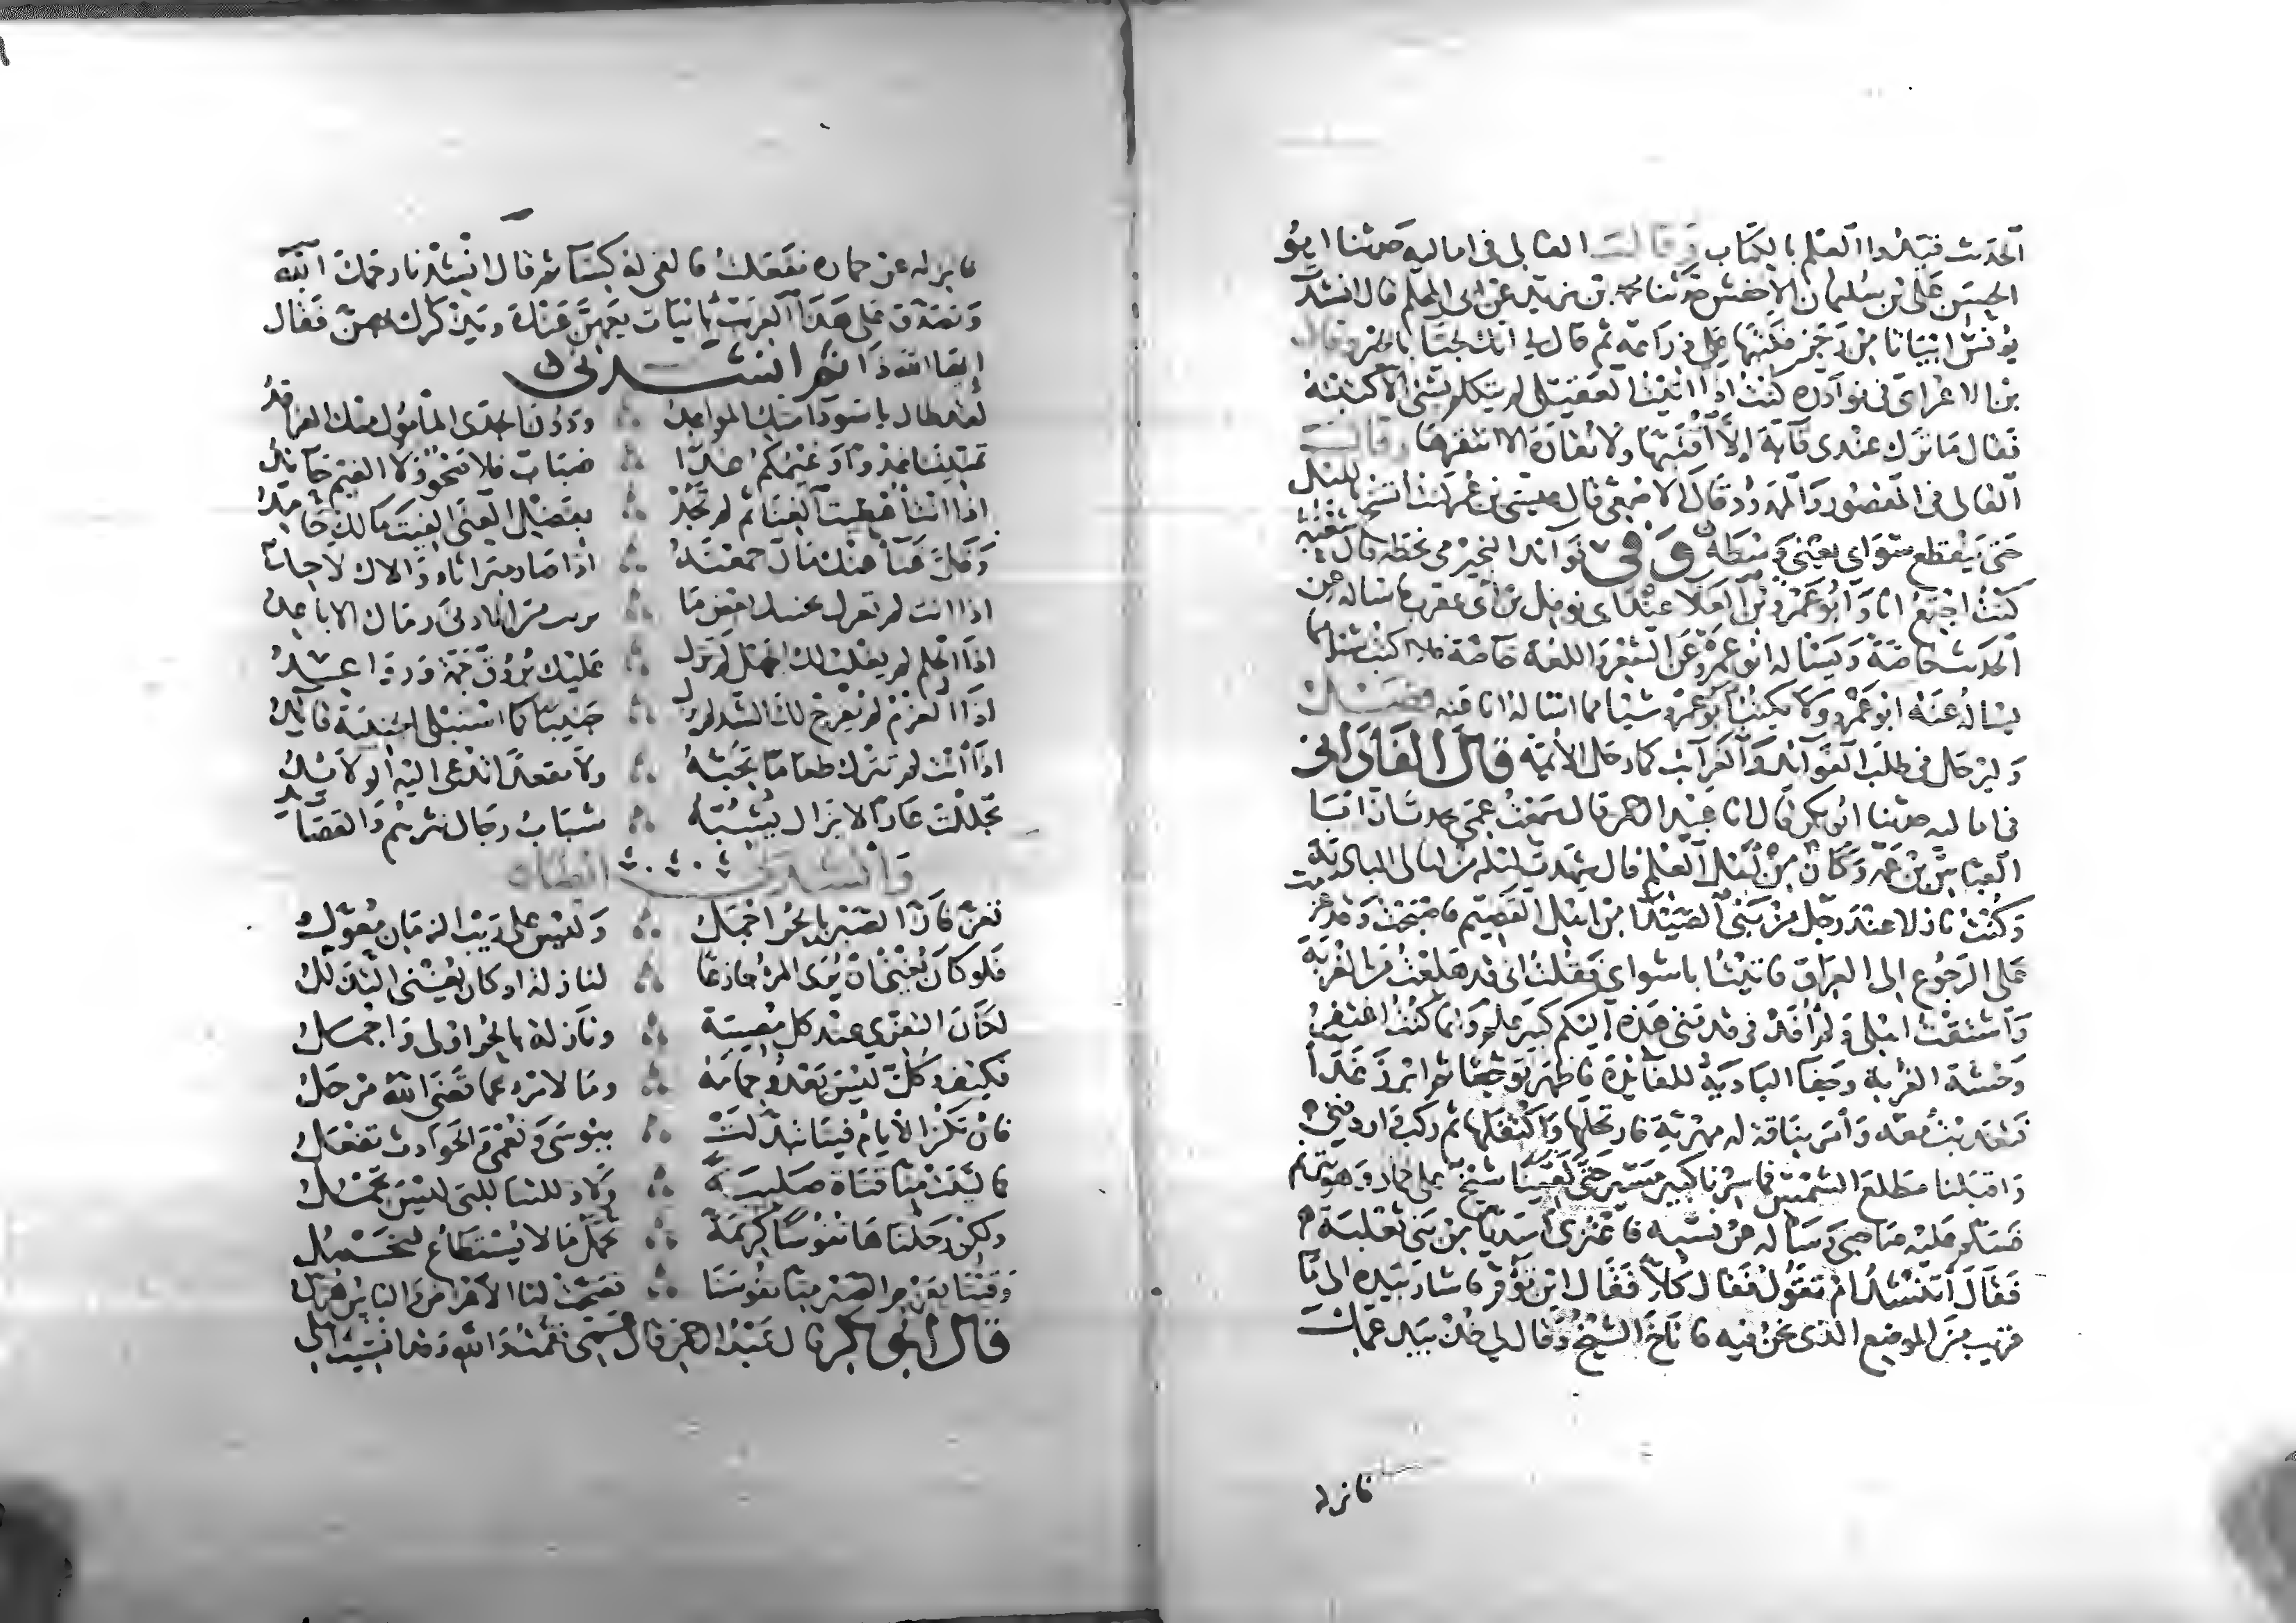 الحديث فقيدوا العلم بالكتاب وقالــــ القالى فى اماليه حدثنا ابو
الحسن على بن سليمان الاخفش حدثنا محمد بن يزيد عن ابى المحلم قال انشدت
يونس ابياتا من رجز فكتبها على ذراعه ثم قال لي انك لجيا بالخير وقال
بن الاعرابى فى نوادره كنت اذا اتيت العقيلى لم يتكلم بشئ الا كتبته
فقال ما ترك عندى قابة الا اقتبها ولا نقارة الا انتقرها وقالــــ
القالى فى المقصور والممدود قال الاصمعى قال عيسى بن عمر كنت انسخ بالليل
حتى ينقطع سوائى يعنى وسطه وفى فوائد النجيرمى بخطه قال شعبة
كنت اجتمع انا وابو عمرو بن العلا عند ابى نوفل بن ابى عقرب فاساله عن
الحديث خاصة ويساله ابو عمرو عن الشعر واللغة خاصة فلا اكتب شيا مما
يساله عنه ابو عمرو ولا يكتب ابو عمرو شيئا مما اساله انا عنه فصــــل
وليرحل فى طلب الفوائد والغرائب كما رحل الائمة قال القالى
فى اماليه حدثنا ابو بكر قال انا عبد الرحمن قال سمعت عمى يحدث ان ابا
العباس بن عمه وكان من اهل العلم قال شهدت ليلة من الليالى بالبادية
وكنت نازلا عند رجل من بنى الصيدا من اهل القصيم فاصبحت وقد عزمت
على الرجوع الى العراق فاتيت ابا مثواي فقلت انى قد هلعت من الغربة
واشتقت اهلى ولم افد فى قدمتى هذه اليكم كبير علم وانما كنت اغتفر
وحشة الغربة وجفا البادية للفائدة فاظهر توجعا ثم ابرز غدا
فتغديت معه وامر بناقة له مهرية فارتحلها واكتفلها ثم ركب واردفنى
واقبلنا مطلع الشمس فما سرنا كبير مسير حتى لقينا شيخ على حمار وهو يترنم
فسلم عليه صاحبى وساله عن نسبه فاعتزى اسديا من بنى ثعلبة
فقال اتنشد ام تقول فقال كلا فقال اين تؤم فاشار بيده الى ما
قريب من الموضع الذى نحن فيه فاناخ الشيخ وقال لي خذ بيد عمك
فانزله
فانزله عن حماره ففعلت فالقى له كسا ثم قال انشدنا رحمك الله
وتصدق على هذا الغريب بابيات يعيهن عنك ويذكرك بهن فقال
إى ها الله ذا ثم انشدنى
لقد طال يا سودا منك المواعد ∴ ودون الجدى المأمول منك الفراقد
تمنيننا غدا وغيمكم غدا ∴ ضباب فلا صحو ولا الغيم جائد
اذا انت اعطيت الغنا ثم لم تجد ∴ بفضل الغنى الفيت مالك حامد
وقل غنا عنك مال جمعته ∴ اذا صار ميراثا وواراك لاحد
اذا انت لم تعرك بجنبك بعض ما ∴ يريب من الادنى رماك الاباعد
اذا الحلم لم يغلب لك الجهل لم تزل ∴ عليك بروق جمة ورواعد
اذا العزم لم يفرج لك الشد لم تزل ∴ جنيبا كما استتلى الجنيبة قائد
اذا انت لم تترك طعاما تحبه ∴ ولا مقعدا تدعى اليه الولائد
تجللت عارا لا يزال يشبه ∴ سباب رجال نثرهم والقصائد
وانشدنى ايضا
تعز فان الصبر بالحر اجمل ∴ وليس على ريب الزمان معول
فلو كان يغنى ان يرى المرء جازعا ∴ لنازلة او كان يغنى التذلل
لكان التعزى عند كل مصيبة ∴ ونازلة بالحر اولى واجمل
فكيف وكل ليس يعدو حمامه ∴ وما لامرء عما قضى الله مزحل
فان تكن الايام فينا تبدلت ∴ ببوسى ونعمى والحوادث تفعل
فما لينت منا قناة صليبة ∴ ولا ذللتنا للتى ليس تجمل
ولكن رحلناها نفوسا كريمة ∴ تحمل ما لا يستطاع فتحمل
وقينا بعزم الصبر منا نفوسنا ∴ فصحت لنا الاعراض والناس هزل
قال ابو بكر قال عبد الرحمن قال عمى فقمت والله وقد انسيت اهلى